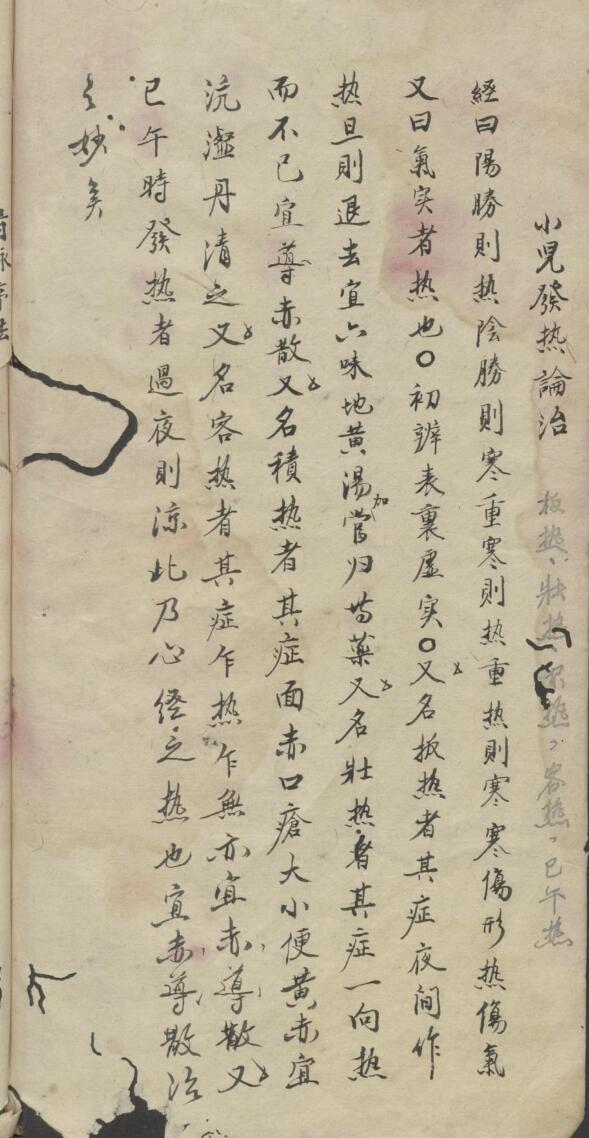 小児發热論治 板热壯热 热客热巳午热
經曰陽勝則热陰勝則寒重寒則热重热則寒寒傷形热傷氣
又曰氣实者热也○初辨表裏虚实○又名板热者其症夜间作
热旦則退去宜六味地黄湯加當归芍藥又名壯热者其症一向热
而不已宜導赤散又名積热者其症面赤口瘡大小便黄赤宜
沆瀣丹清之又名客热者其症乍热乍無亦宜赤導散又
巳午時發热者過夜則凉此乃心經之热也宜赤導散治
之妙矣